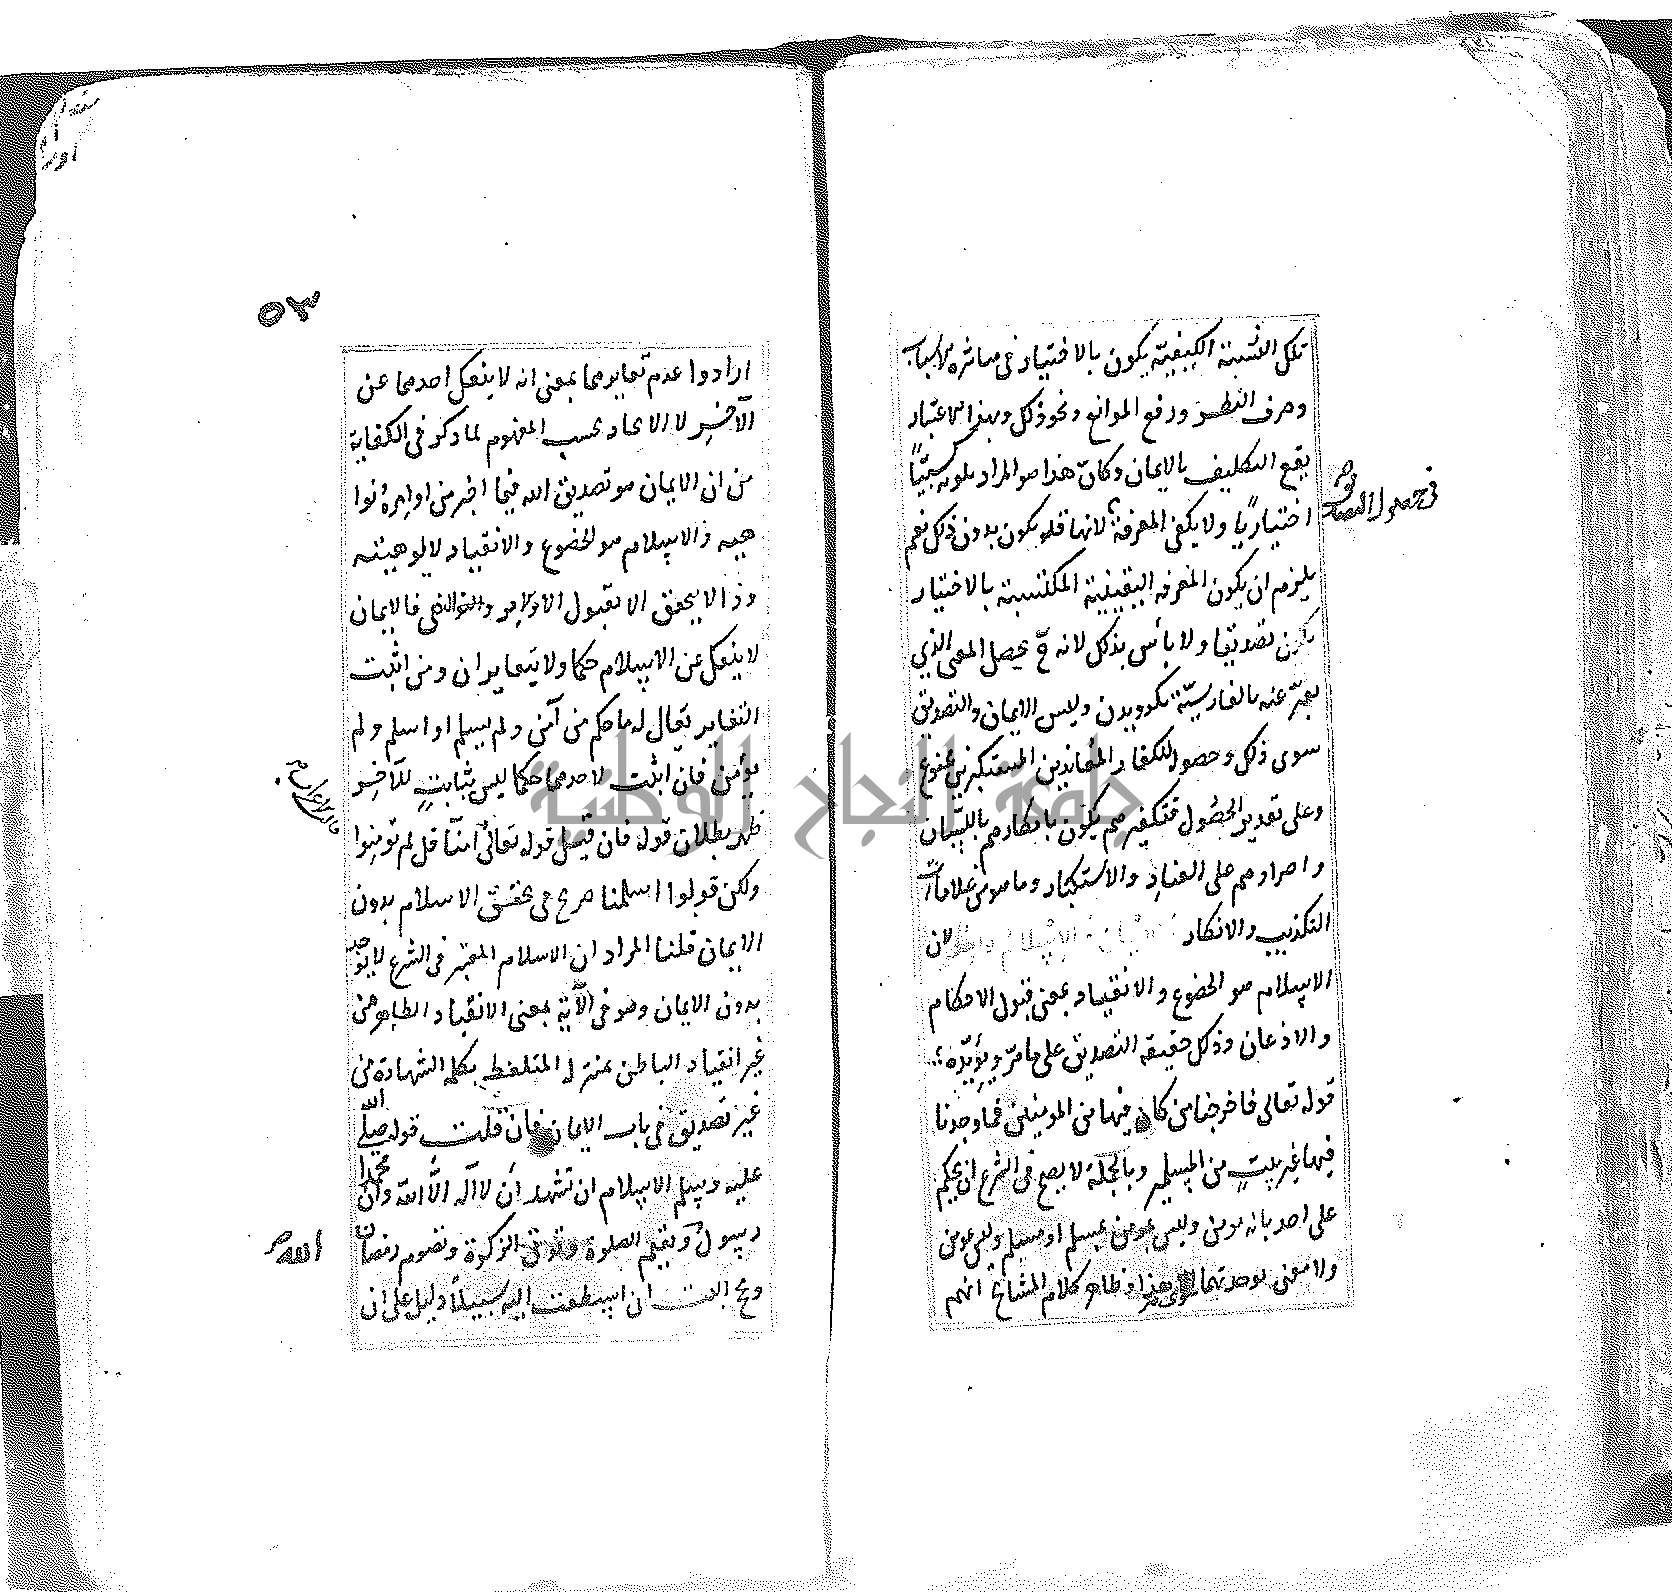 تلك النسبة الكيفية يكون بالاختيار في مباشرة الاسباب
وصرف النظر ورفع الموانع ونحو ذلك وبهذا الاعتبار
يقع التكليف بالايمان وكان هذا هو المراد بكونه كسبيا
اختياريا ولا يكفي المعرفة لانها قد يكون بدون ذلك نعم
في حصول التصديق
يلزم ان يكون المعرفة اليقينية المكتسبة بالاختيار
يكون تصديقا ولا بأس بذلك لانه ح يحصل المعنى الذي
يعبر عنه بالفارسية بكرويدن وليس الايمان والتصديق
سوى ذلك وحصوله للكفار المعاندين المستكبرين ممنوع
وعلى تقدير الحصول فتكفيرهم يكون بانكارهم باللسان
واصرارهم على العناد والاستكبار وما هو من علامات
التكذيب والانكار والايمان والاسلام واحد لان
الاسلام هو الخضوع والانقياد بمعنى قبول الاحكام
والاذعان وذلك حقيقة التصديق على ما مر ويؤيده
قوله تعالى فاخرجنا من كان فيها من المومنين فما وجدنا
فيها غير بيت من المسلمين وبالجملة لا يصح في الشرع ان يحكم
على احد بانه مومن وليس بمسلم او مسلم وليس بمومن
ولا معنى لوحدتهما سوى هذا وظاهر كلام المشايخ انهم
٥٣
ارادوا عدم تغايرهما بمعنى انه لا ينفك احدهما عن
الآخر لا الاتحاد بحسب المفهوم لما ذكر في الكفاية
من ان الايمان هو تصديق الله فيما اخبر من اوامره ونوا
هيه والاسلام هو الخضوع والانقياد لالوهيته
وذا لا يتحقق الا بقبول الاوامر والنواهي فالايمان
لا ينفك عن الاسلام حكما ولا يتغايران ومن اثبت
التغاير يقال له ما حكم من آمن ولم يسلم او اسلم ولم
يؤمن فان اثبت لاحدهما حكما ليس بثابت للآخر
ظهر بطلان قوله فان قيل قوله تعالى آمنا قل لم تومنوا
قالت الاعراب
ولكن قولوا اسلمنا صريح في تحقق الاسلام بدون
الايمان قلنا المراد ان الاسلام المعتبر في الشرع لا يوجد
بدون الايمان وهو في الآية بمعنى الانقياد الظاهر من
غير انقياد الباطن بمنزلة المتلفظ بكلمة الشهادة من
غير تصديق في باب الايمان فان قلت قوله صلى الله
عليه وسلم الاسلام ان تشهد أن لا اله الا الله وأن محمدا
رسول وتقيم الصلوة وتؤتي الزكوة وتصوم رمضان
الله
وتحج البيت ان استطعت اليه سبيلا دليل على ان
جامعة النجاح الوطنية